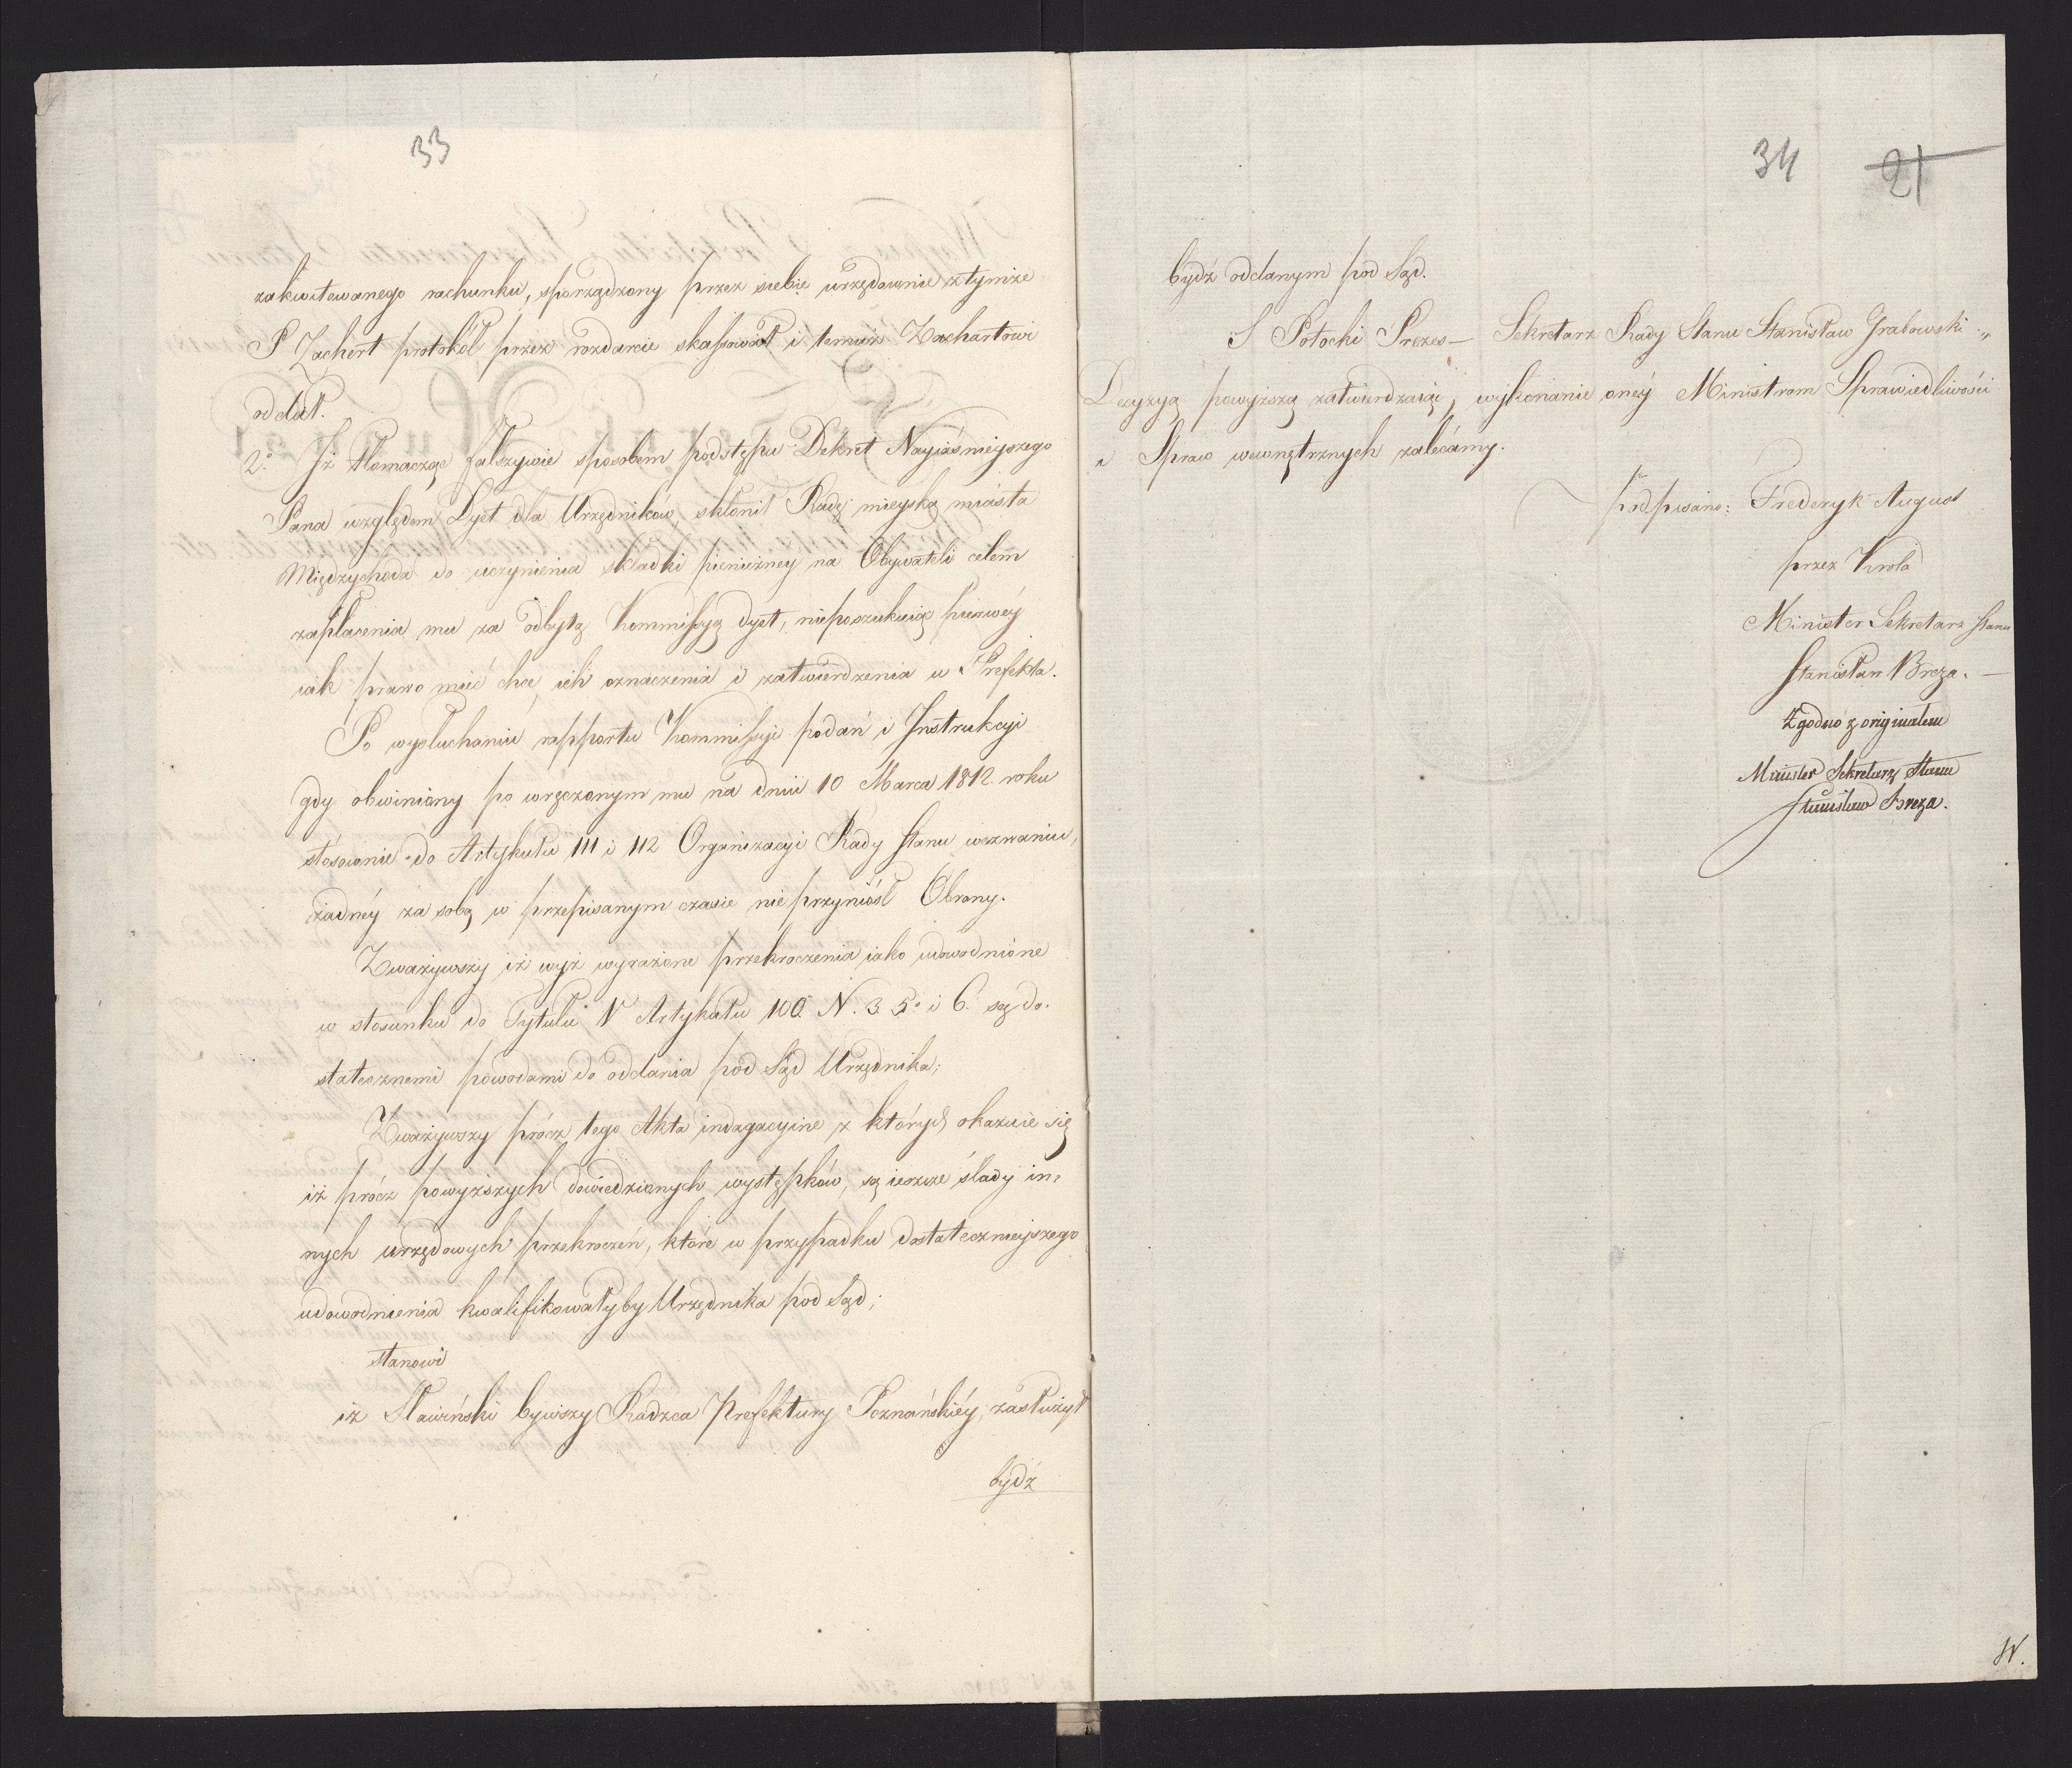 33
zakwitowanego rachunku, sporządzony przez siebie urzędownie z tymże
P Zachert protokół przez rozdarcie skassował i temuż Zachartowi
oddał.
2° Iż tłomacząc fałszywie sposobem podstępu Dekret Nayiaśnieyszego
Pana względem Dyet dla Urzędników, skłonił Radę mieyską miasta
Międzychoda do uczynienia składki pienieżney na Obywateli celem
zapłacenia mu za odbytą Kommissyą dyet, nieposzukuiąc pierwéy
iak prawo mieć chce, ich oznaczenia i zatwierdzenia u Prefekta.
Po wysłuchaniu rapportu Kommissyi podań i Instrukcyi
gdy obwiniony po wręczonym mu na dniu 10 Marca 1812 roku
stósownie do Artykułu 111 i 112 Organizacyi Rady Stanu wezwaniu,
żadnéy za sobą w przepisanym czasie nie przyniósł Obrony.
Zważywszy iż wyż wyrażone przekroczenia iako udowodnione
w stosunku do Tytułu V Artykułu 100 N. 3. 5° i 6. są do-
statecznemi powodami do oddania pod Sąd Urzędnika;
Zważywszy prócz tego Akta indagacyine z których okazuie się
iż prócz powyższych dowiedzionych występków, są ieszcze ślady in-
nych urzędowych przekroczeń, które w przypadku dostatecznieyszego
udowodnienia kwalifikowałyby Urzędnika pod Sąd;
stanowi
iż Sławiński bywszy Radzca Prefektury Poznańskiéy, zasłużył
bydź
34 21
bydź oddanym pod Sąd.
S Potocki Prezes— Sekretarz Rady Stanu Stanisław Grabowski
Decyzyą powyższą zatwierdzaiąc, wykonanie onéy Ministrom Sprawiedliwości
i Spraw wewnętrznych zalecamy.
podpisano: Frederyk August
przez Króla
Minister Sekretarz Stanu
Stanisław Breza. —
Zgodno z originałem
Minister Sekretarz Stanu
Stanisław Breza.
W.